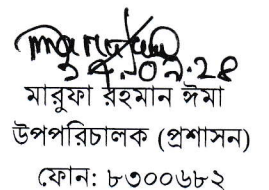 মারুফা রহমান ঈমা
উপপরিচালক (প্রশাসন)
ফোন: ৮৩০০৬৮২